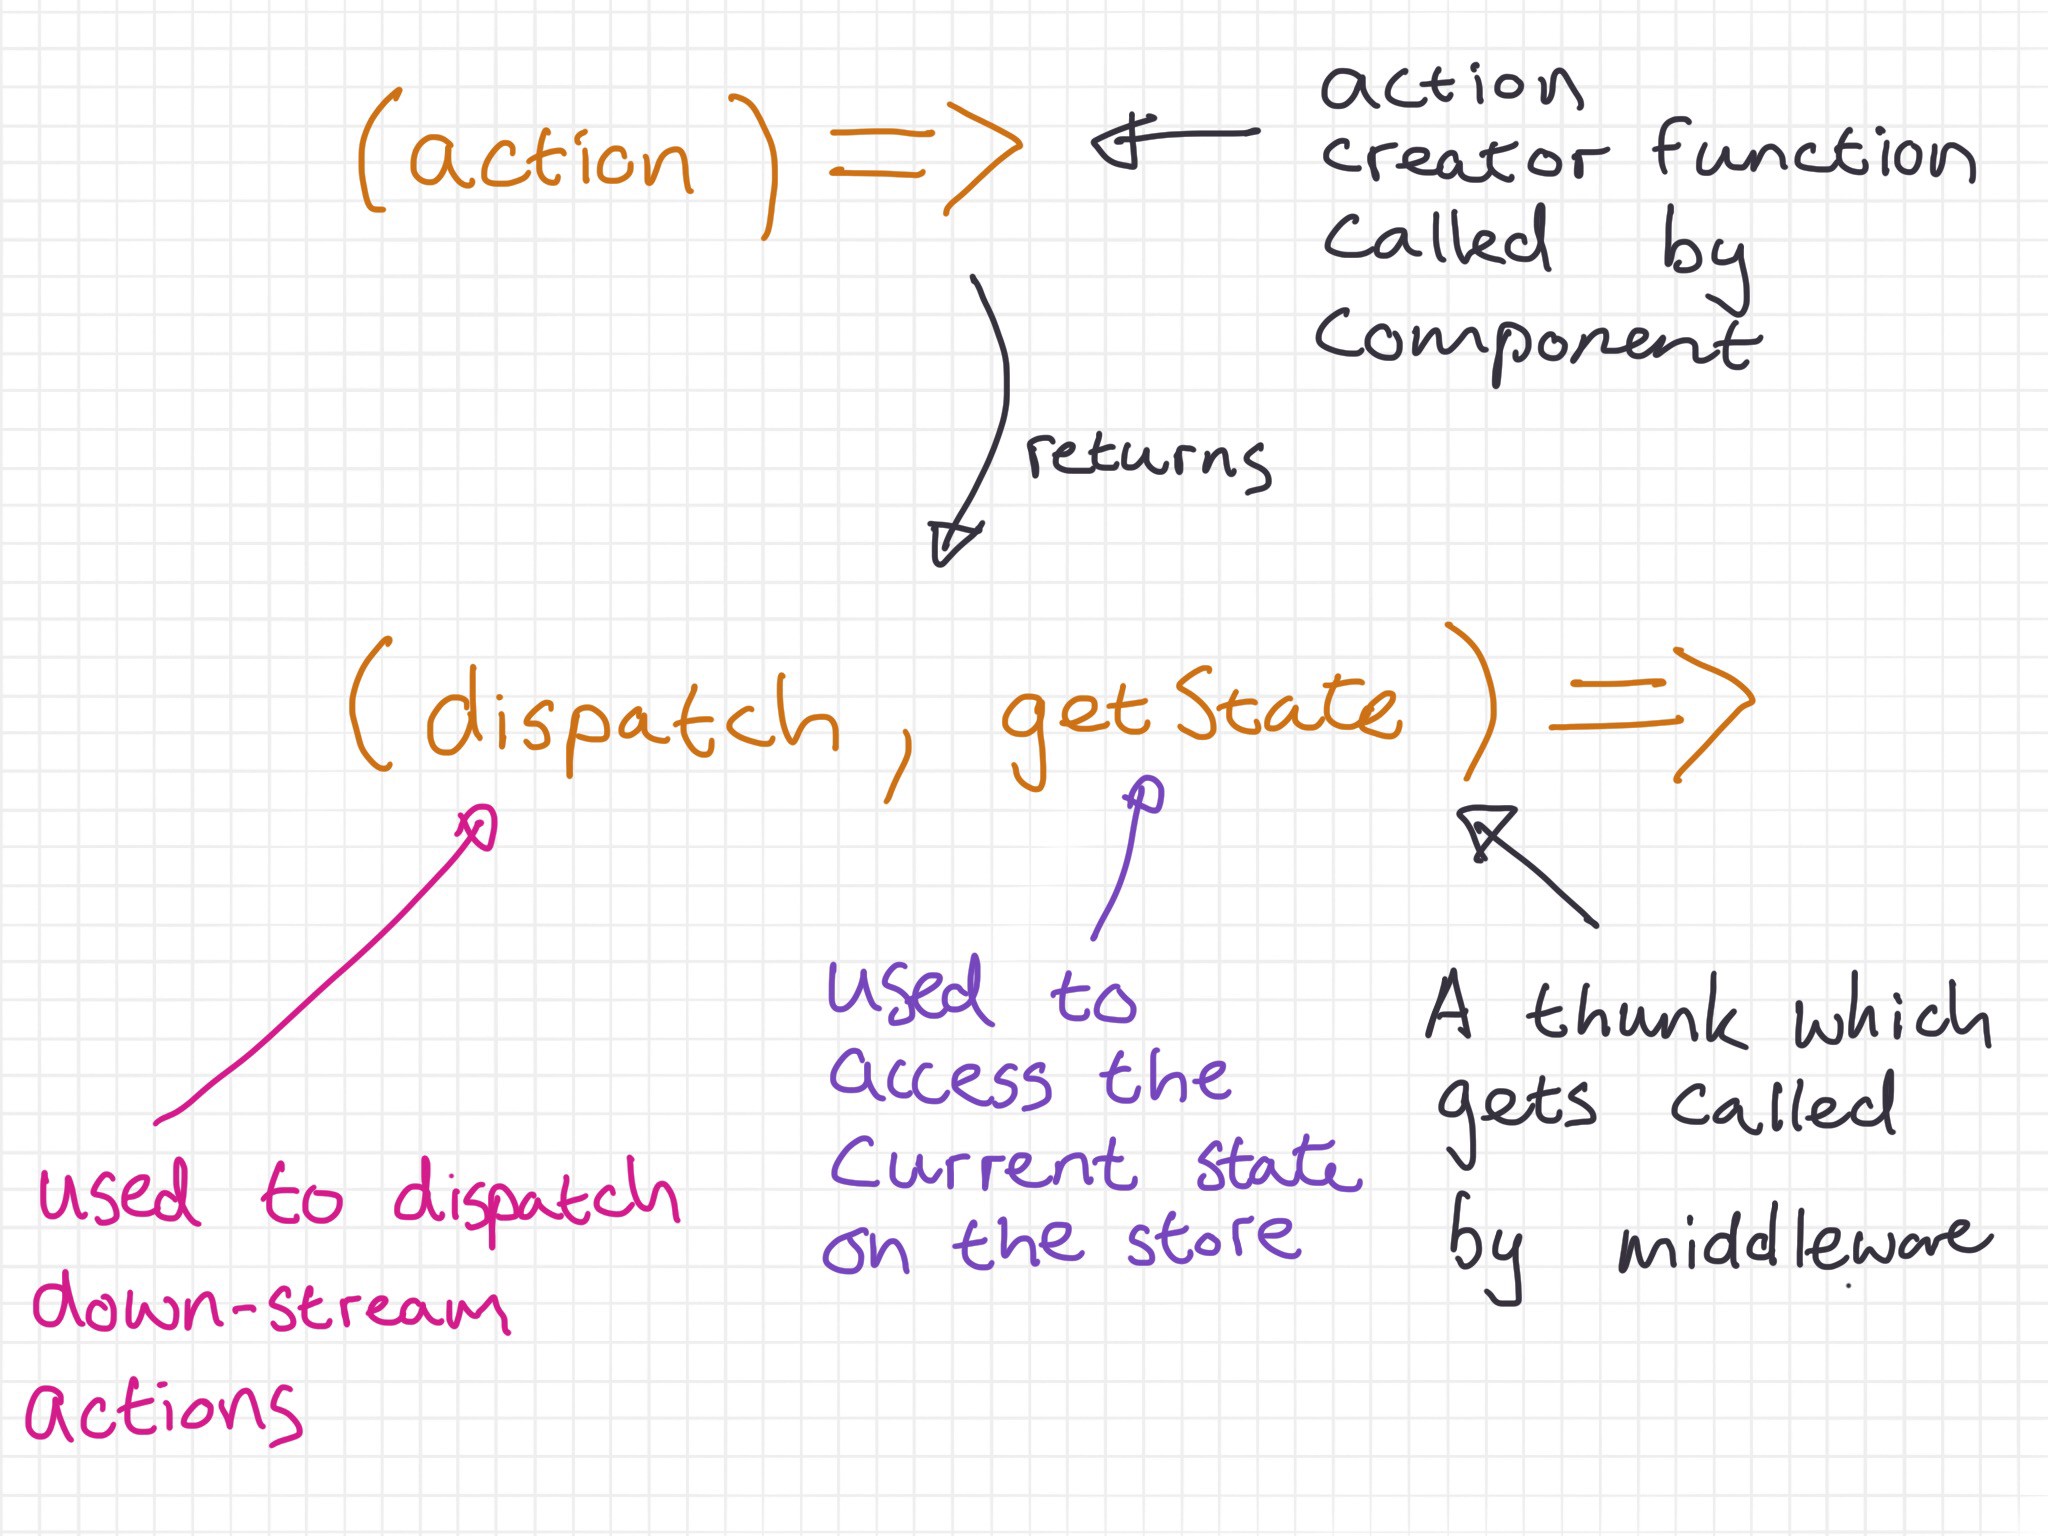 (action) =>
action
creator function
called by
component
returns
(dispatch, getState) =>
used to dispatch
down-stream
actions
used to
access the
current state
on the store
A thunk which
gets called
by middleware